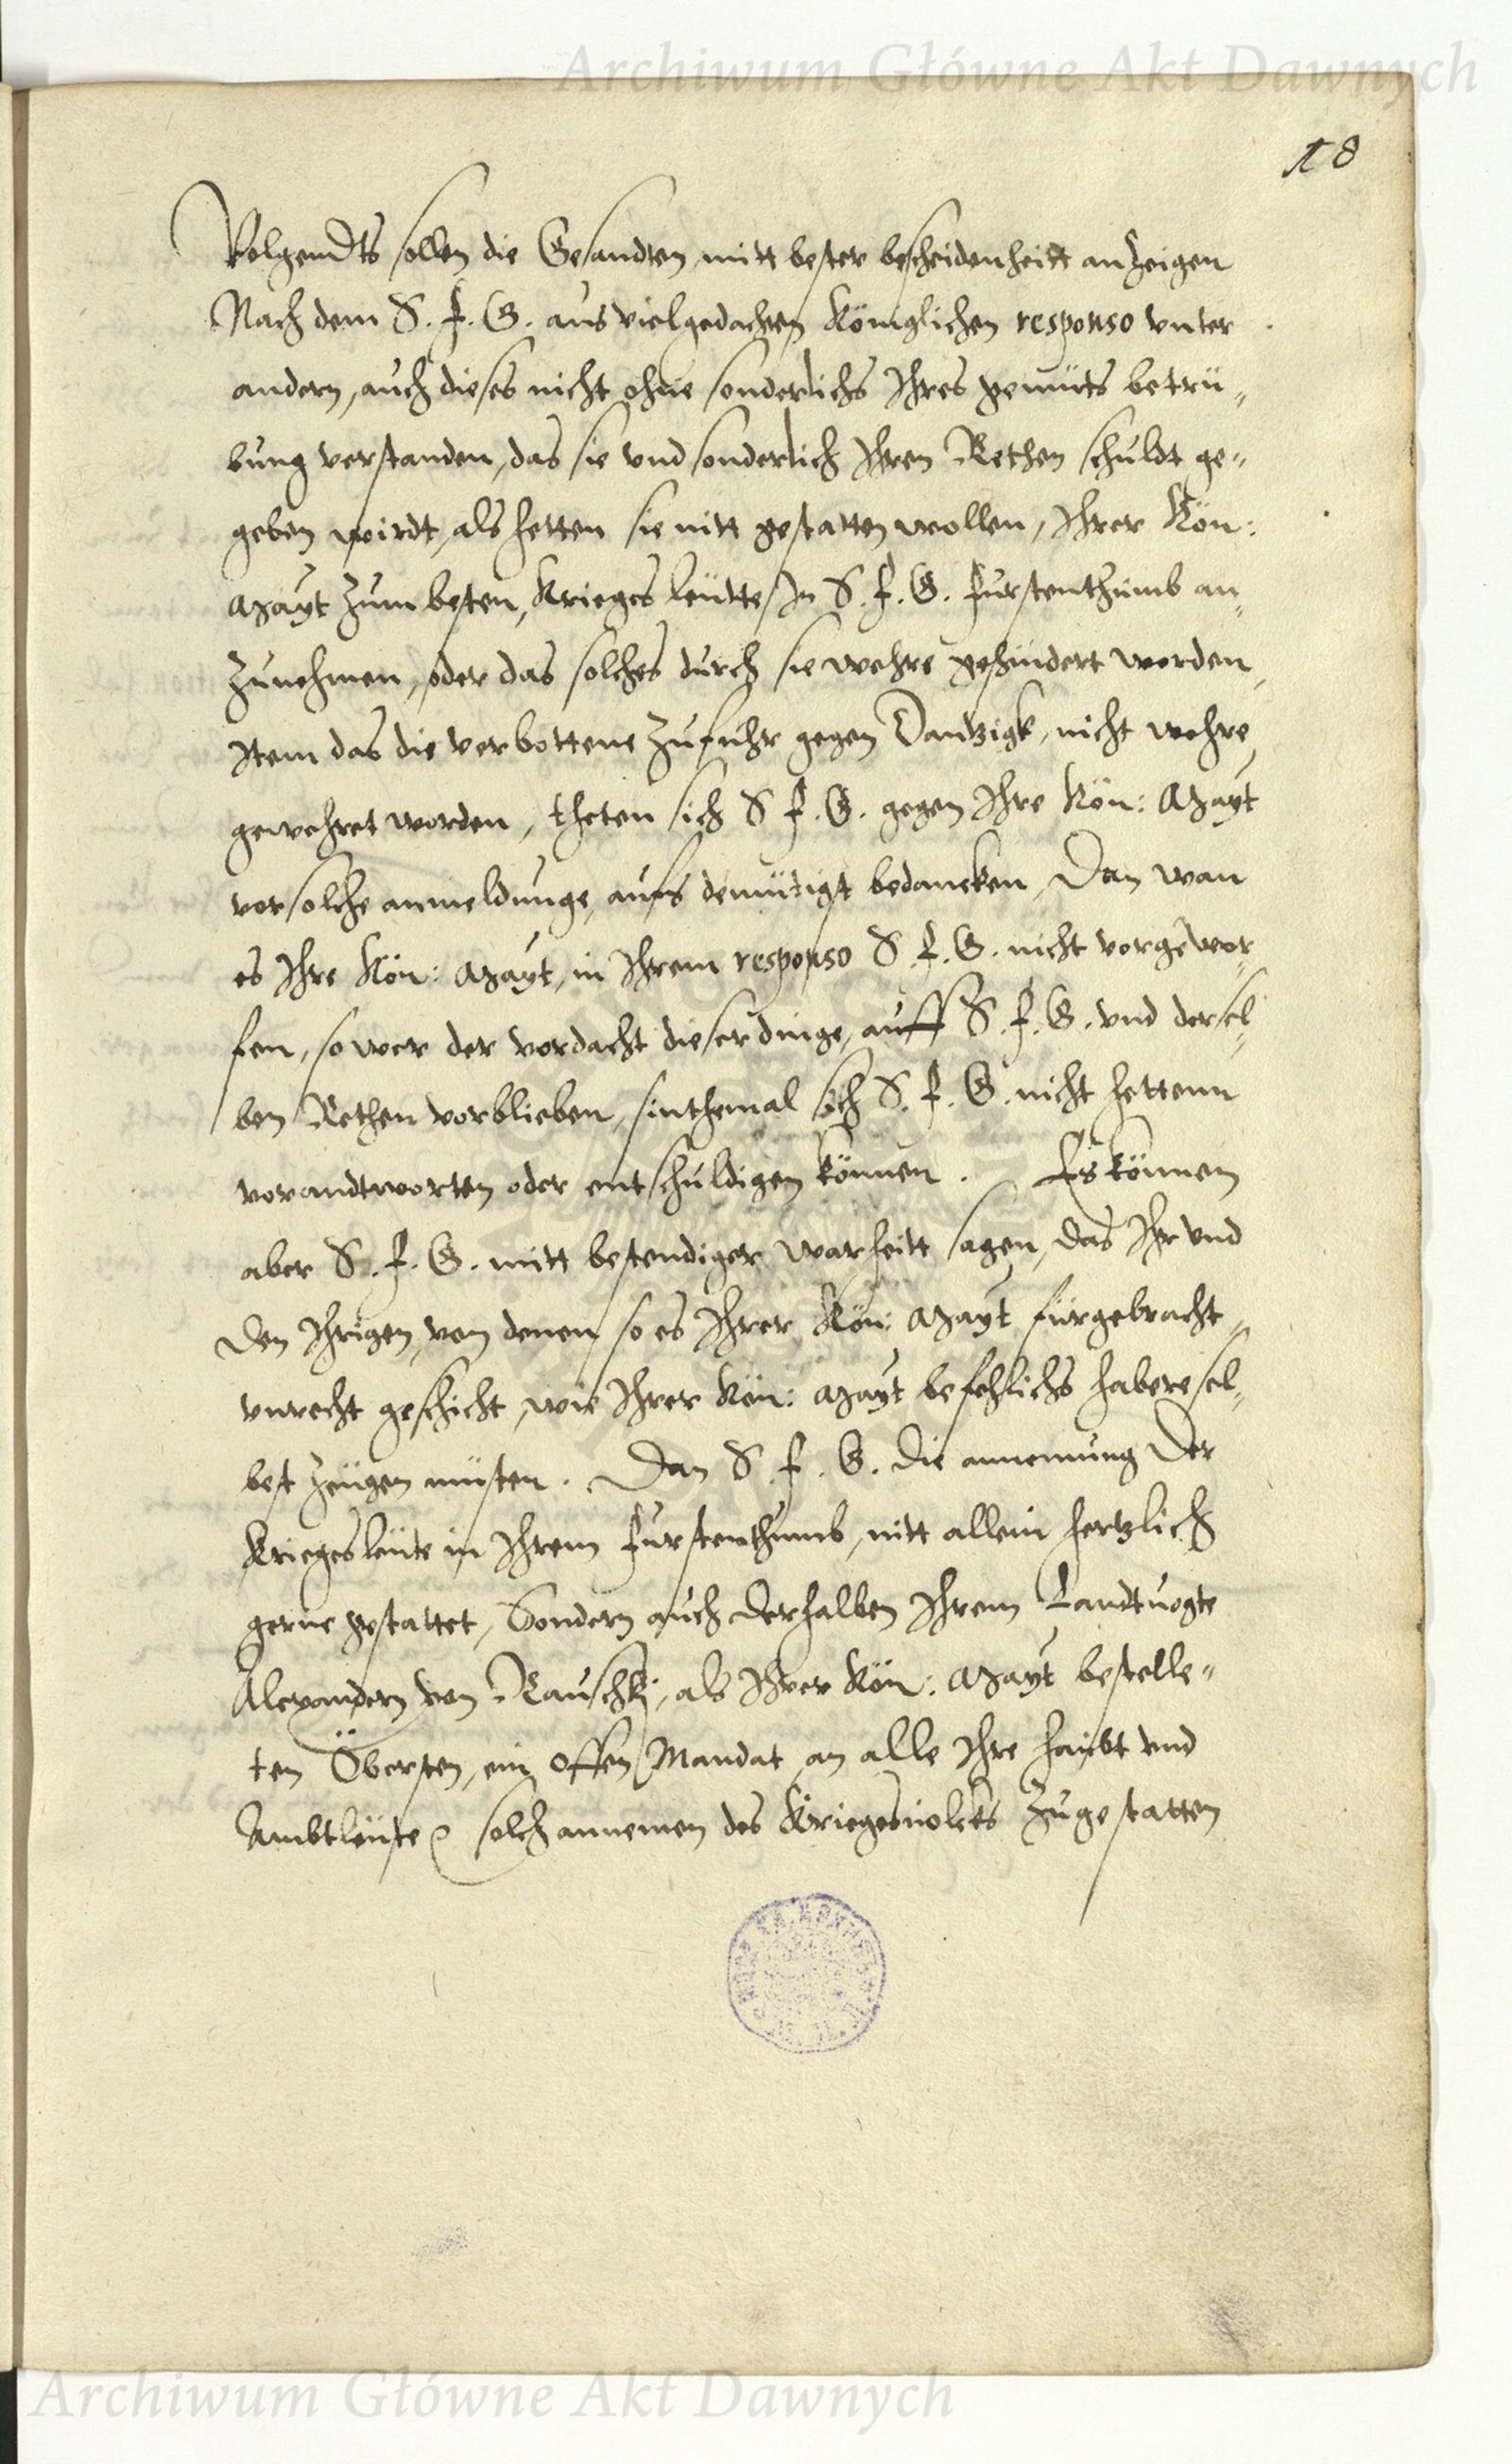 Archiwum Główne Akt Dawnych
18
Volgendts sollen die Gesandten mitt bester bescheidenheitt anzeigen
Nach dem S. F. G. aus vielgedachten Königlichen responso vnter
andern, auch dieses nicht ohne sonderlichs Ihres gemüts betrü-
bung verstanden, das sie vnd sonderlich Ihren Rethen schuldt ge-
geben wirdt, als hetten sie nitt gestatten wollen, Ihrer Kön:
Mayt zum besten, Krieges leutte In S. F. G. Furstenthumb an-
zunehmen, oder das solches durch sie wehre gehindert worden,
Item das die verbottene Zufuhr gegen Dantzigk, nicht wehre
gewehret worden, theten sich S F. G. gegen Ihre Kön: Mayt
vor solche anmeldunge, aufs demütigst bedancken, Dan wan
es Ihre Kön: Mayt, in Ihrem responso S. F. G. nicht vorgewor-
fen, so wer der vordacht dieser dinge, auff S. F. G. vnd dersel-
ben Rethen vorblieben, sinthemal sich S. F. G. nicht hettenn
vorandtworten oder entschuldigen können. Es können
aber S. F. G. mitt bestendiger warheitt sagen, das Ihr vnd
den Ihrigen, von denen so es Ihrer Kön: Mayt fürgebracht,
vnrecht geschicht, wie Ihrer Kön: Mayt befehlichs habere sel-
best zeugen müsten. Dan S. F. G. die annemung der
Kriegesleute in Ihrem Furstenthumb, nitt allein hertzlich
gerne gestattet, Sondern auch derhalben Ihrem Landtuogte
Alexandern von Rauschki, als Ihrer Kön: Mayt bestelle-
ten Öbersten, ein offen Mandat an alle Ihre haubt vnd
Ambtleute solch annemen des Kriegesuolcks zugestatten
Archiwum Główne Akt Dawnych